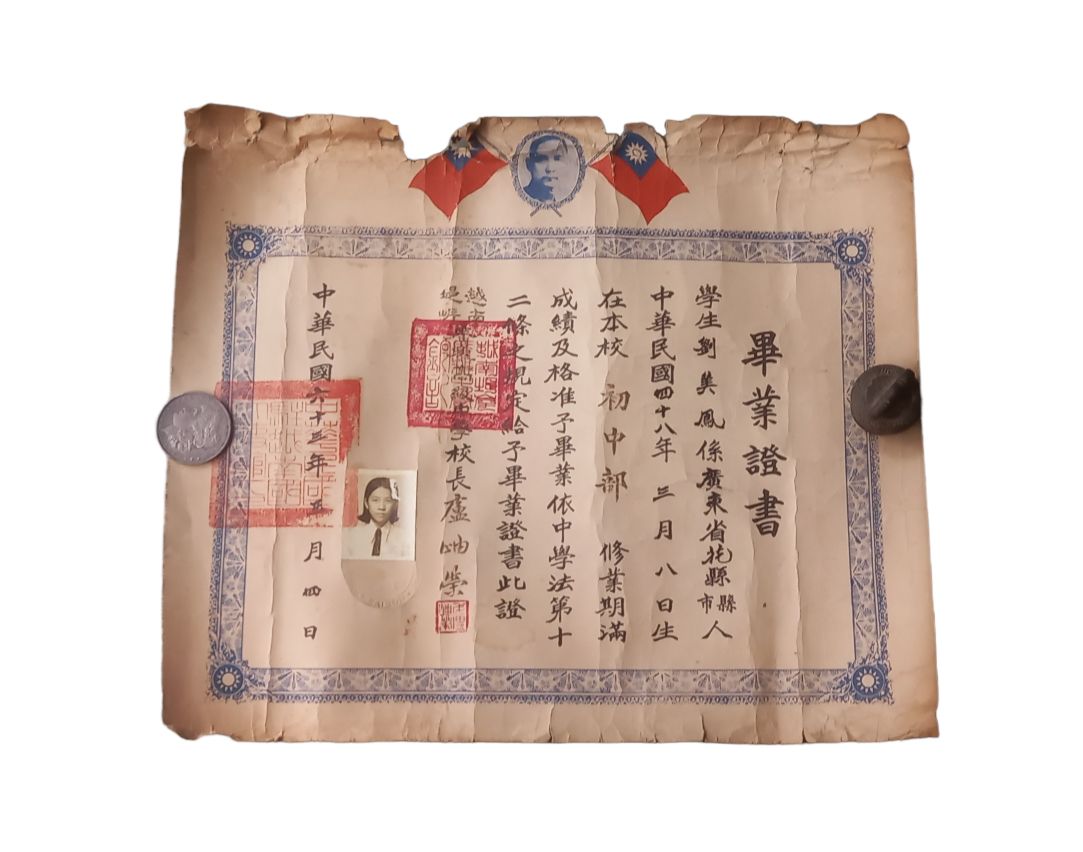 畢業證書
學生劉美鳳係廣東省花縣縣市人
中華民國四十八年三月八日生
在本校初中部修業期滿
成績及格准予畢業依中學法第十
二條之規定給予畢業證書此證
越南
中學校長盧
中華民國六十三年五月四日